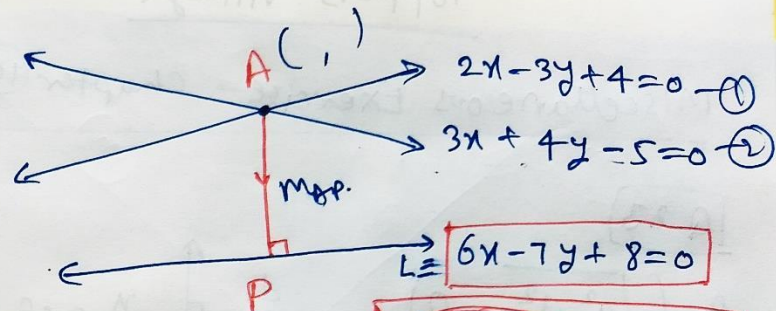 A ( , )
2x-3y+4=0 -①
3x + 4y -5=0 -②
MAP.
L≡ 6x-7y+8=0
P